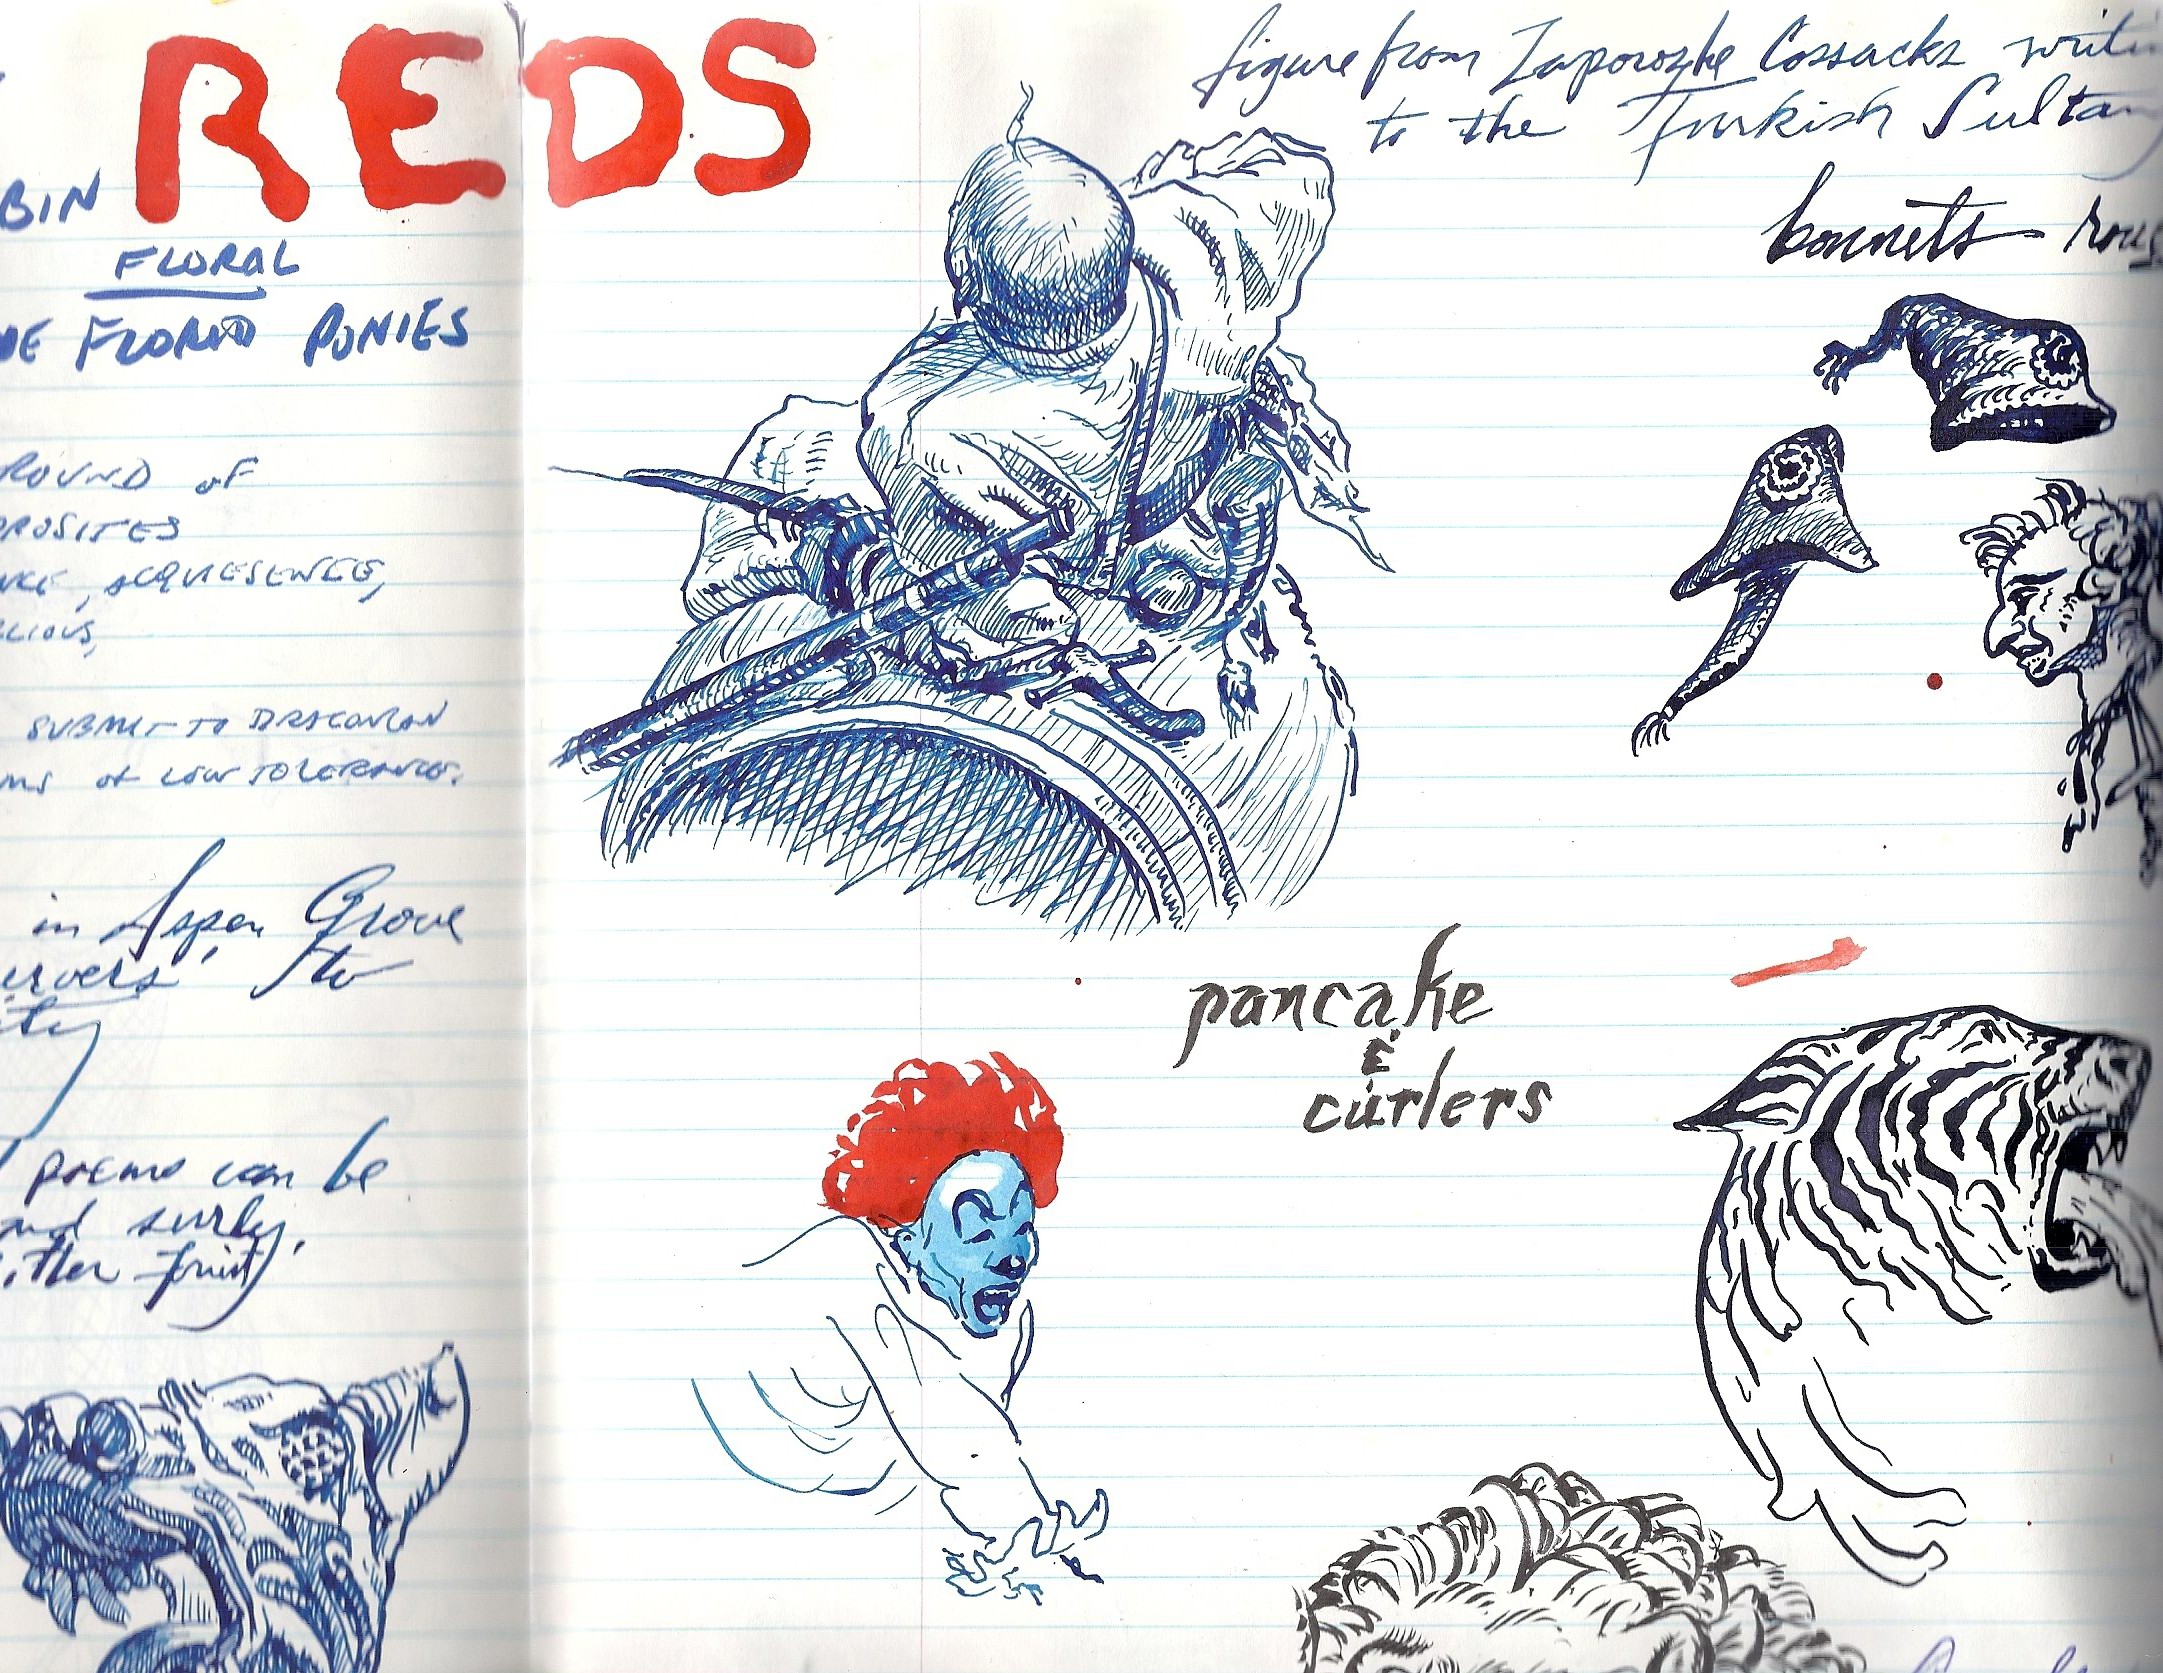 REDS
BIN
FLORAL
FLORID PONIES
ROUND OF
OPPOSITES
ACQUIESENCE,
SUBMIT TO DRACONIAN
OF LOW TOLERANCE.
in Aspen Grove
to
poems can be
and surly,
fruit,
figure from Zaporozhe Cossacks writin
to the Turkish Sultan
bonnets
pancake
&
curlers